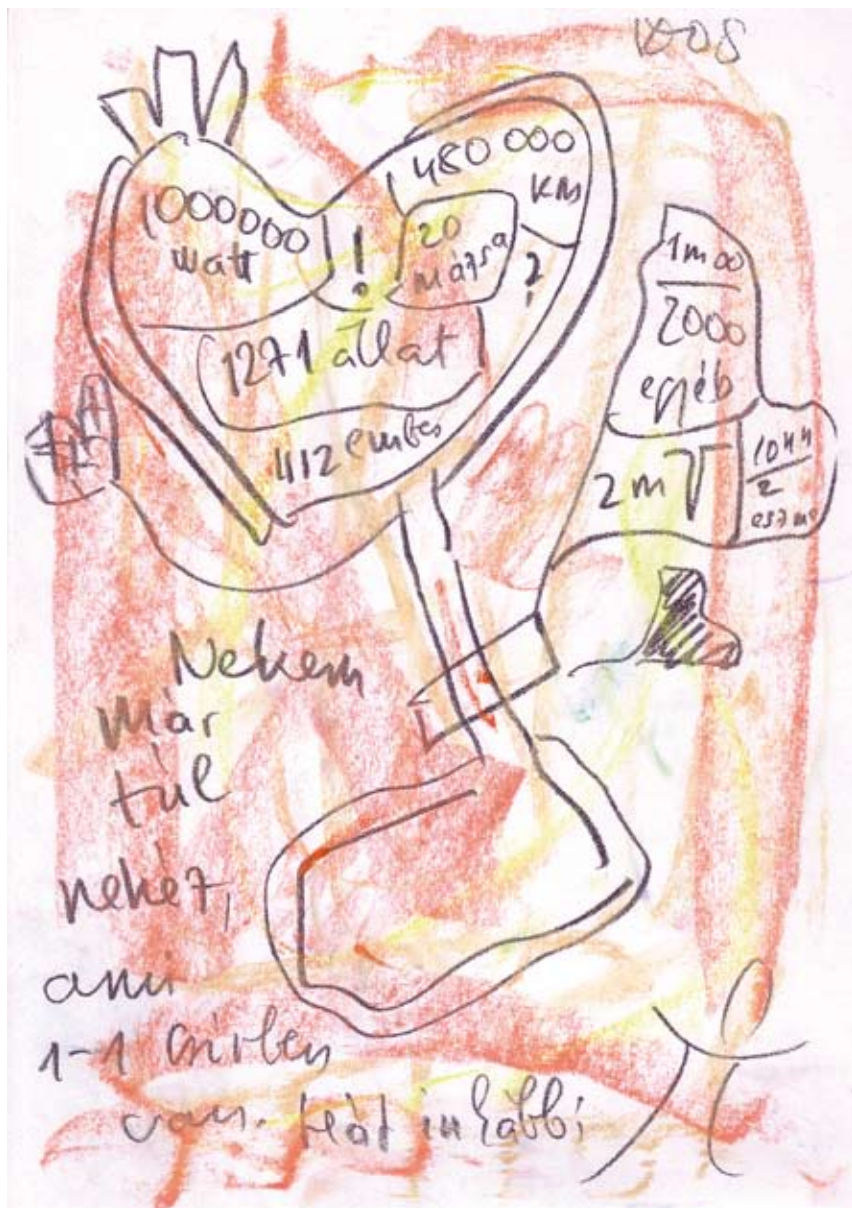 1000000
watt
!
480 000
km
20
mázsa
?
1271 állat
412 ember
1m00
2000
egyéb
2m
1044
2
eszme
Nekem
már
túl
nehéz,
ami
1-1
van. Hát inkább